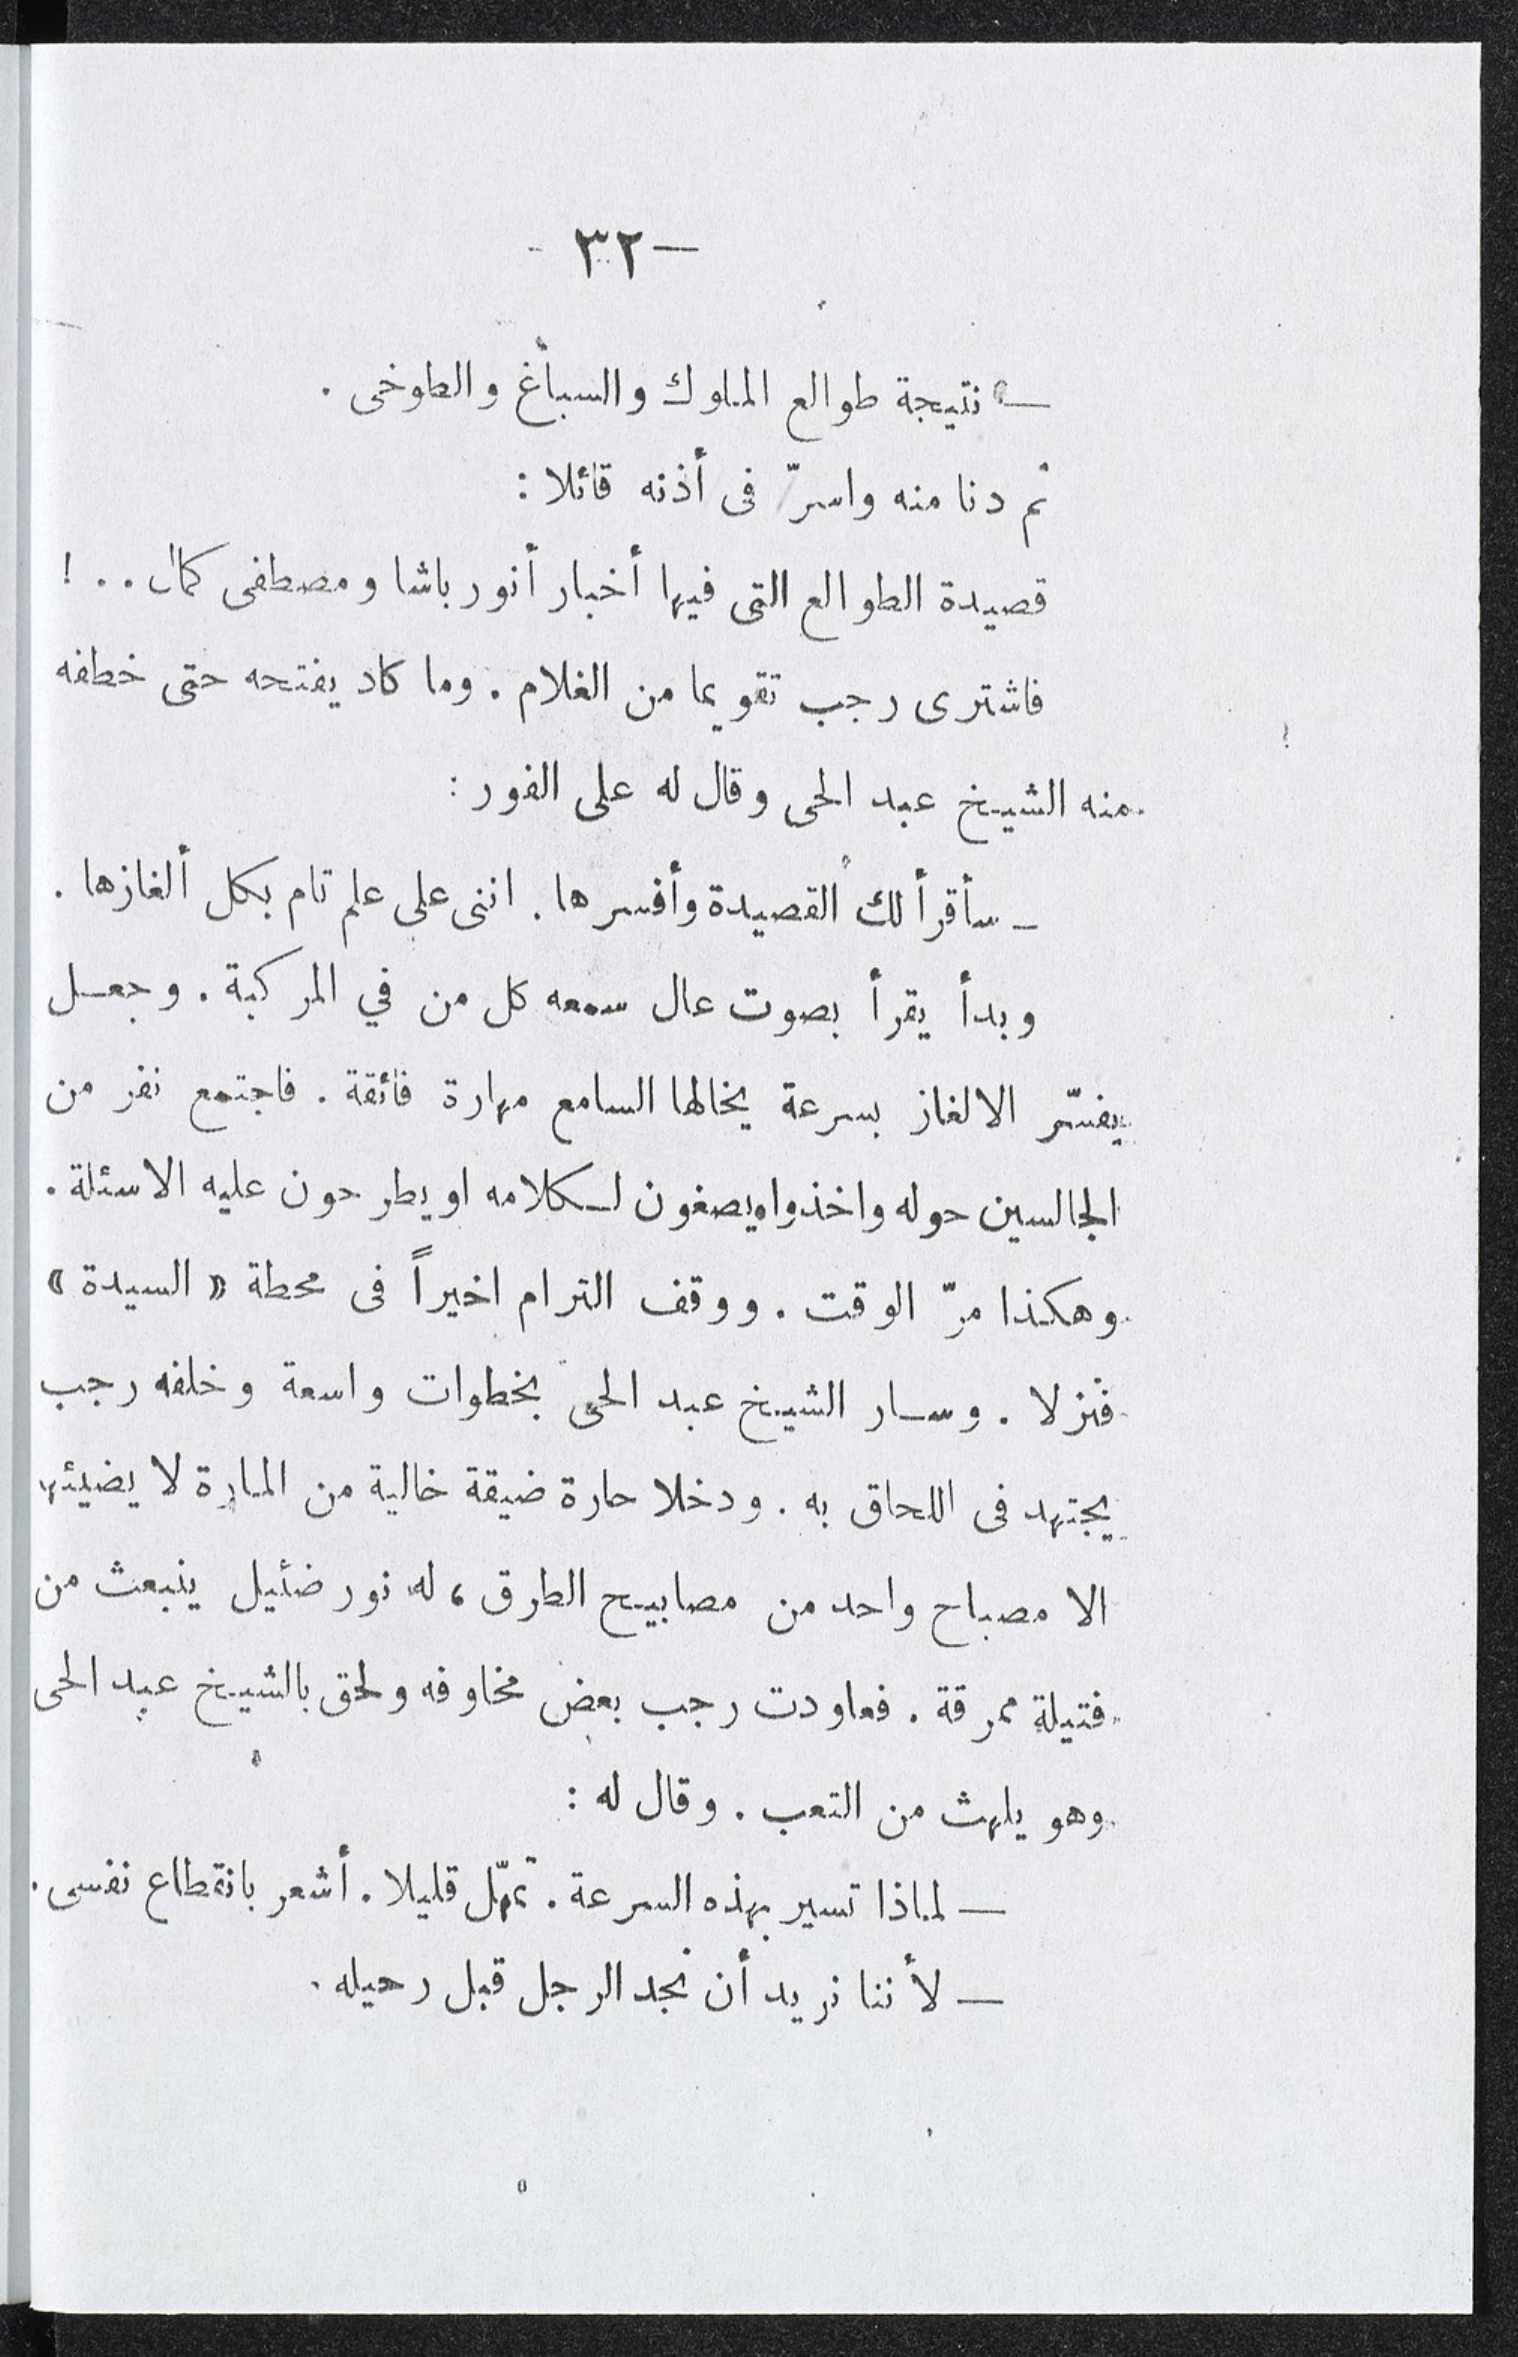 — ٣٢ -
— نتيجة طوالع الملوك والسباغ والطوخى .
ثم دنا منه واسرّ فى أذنه قائلا :
قصيدة الطوالع التى فيها أخبار أنور باشا ومصطفى كمال . . !
فاشترى رجب تقويما من الغلام . وما كاد يفتحه حتى خطفه
منه الشيخ عبد الحى وقال له على الفور :
— سأقرأ لك القصيدة وأفسرها . اننى على علم تام بكل ألغازها .
وبدأ يقرأ بصوت عال سمعه كل من في المركبة . وجعل
يفسّر الالغاز بسرعة يخالها السامع مهارة فائقة . فاجتمع نفر من
الجالسين حوله واخذوا يصغون لكلامه او يطرحون عليه الاسئلة .
وهكذا مرّ الوقت . ووقف الترام اخيراً فى محطة « السيدة »
فنزلا . وسار الشيخ عبد الحى بخطوات واسعة وخلفه رجب
يجتهد فى اللحاق به . ودخلا حارة ضيقة خالية من المارة لا يضيئها
الا مصباح واحد من مصابيح الطرق ، له نور ضئيل ينبعث من
فتيلة ممرقة . فعاودت رجب بعض مخاوفه ولحق بالشيخ عبد الحى
وهو يلهث من التعب . وقال له :
— لماذا تسير بهذه السرعة . تمهّل قليلا . أشعر بانقطاع نفسى .
— لأننا نريد أن نجد الرجل قبل رحيله .